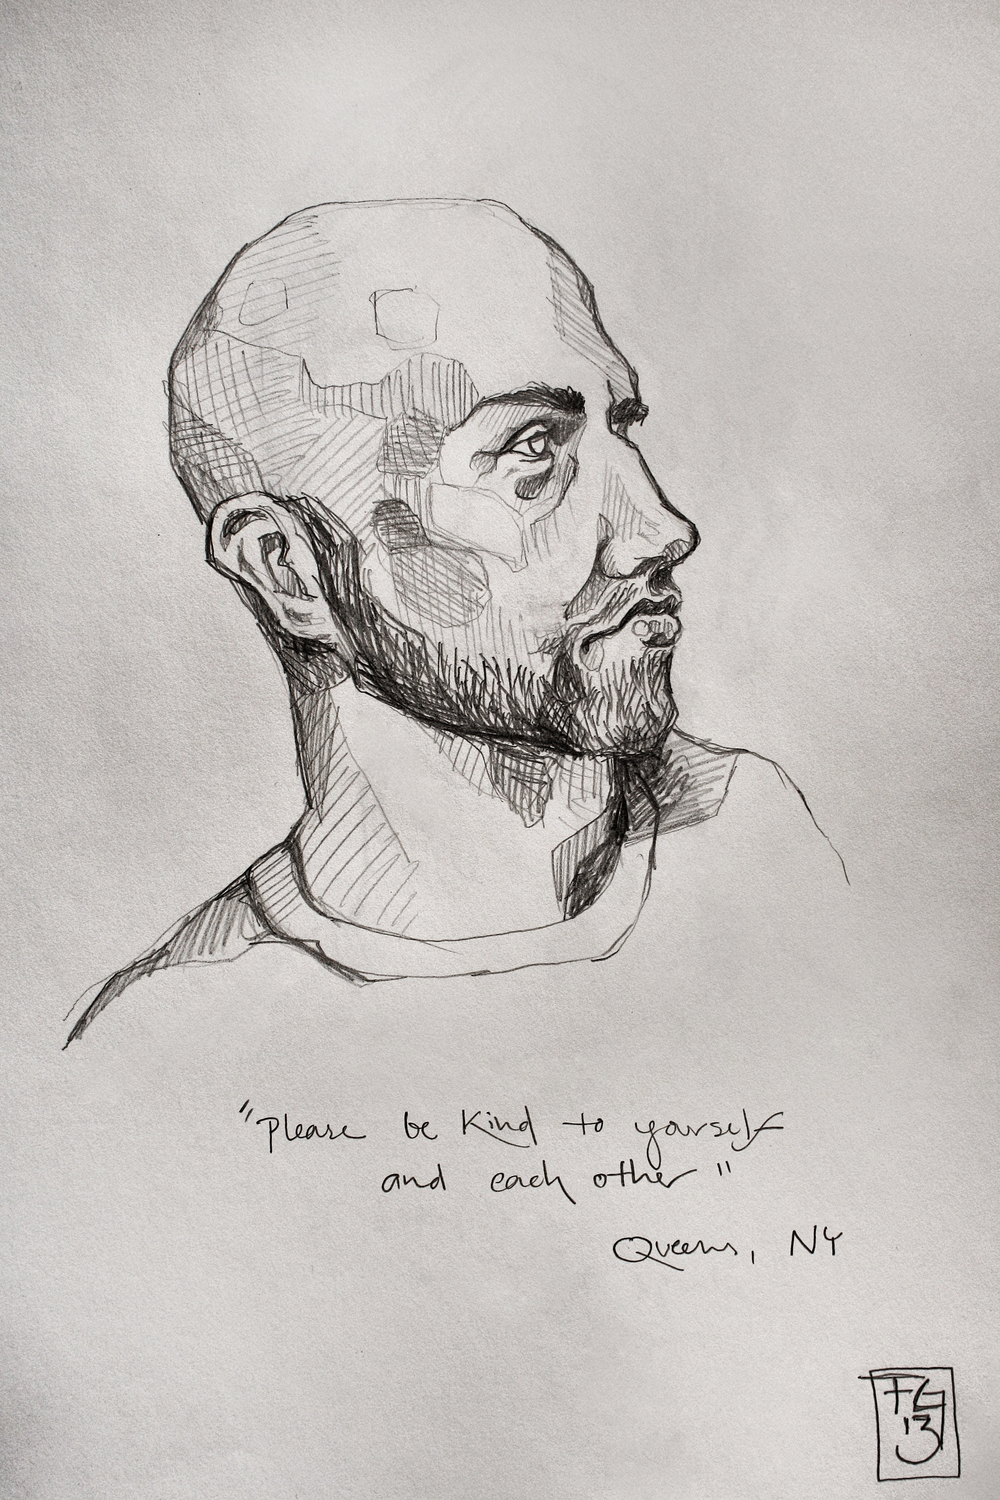 "Please be kind to yourself
and each other"
Queens, NY
FG
'13